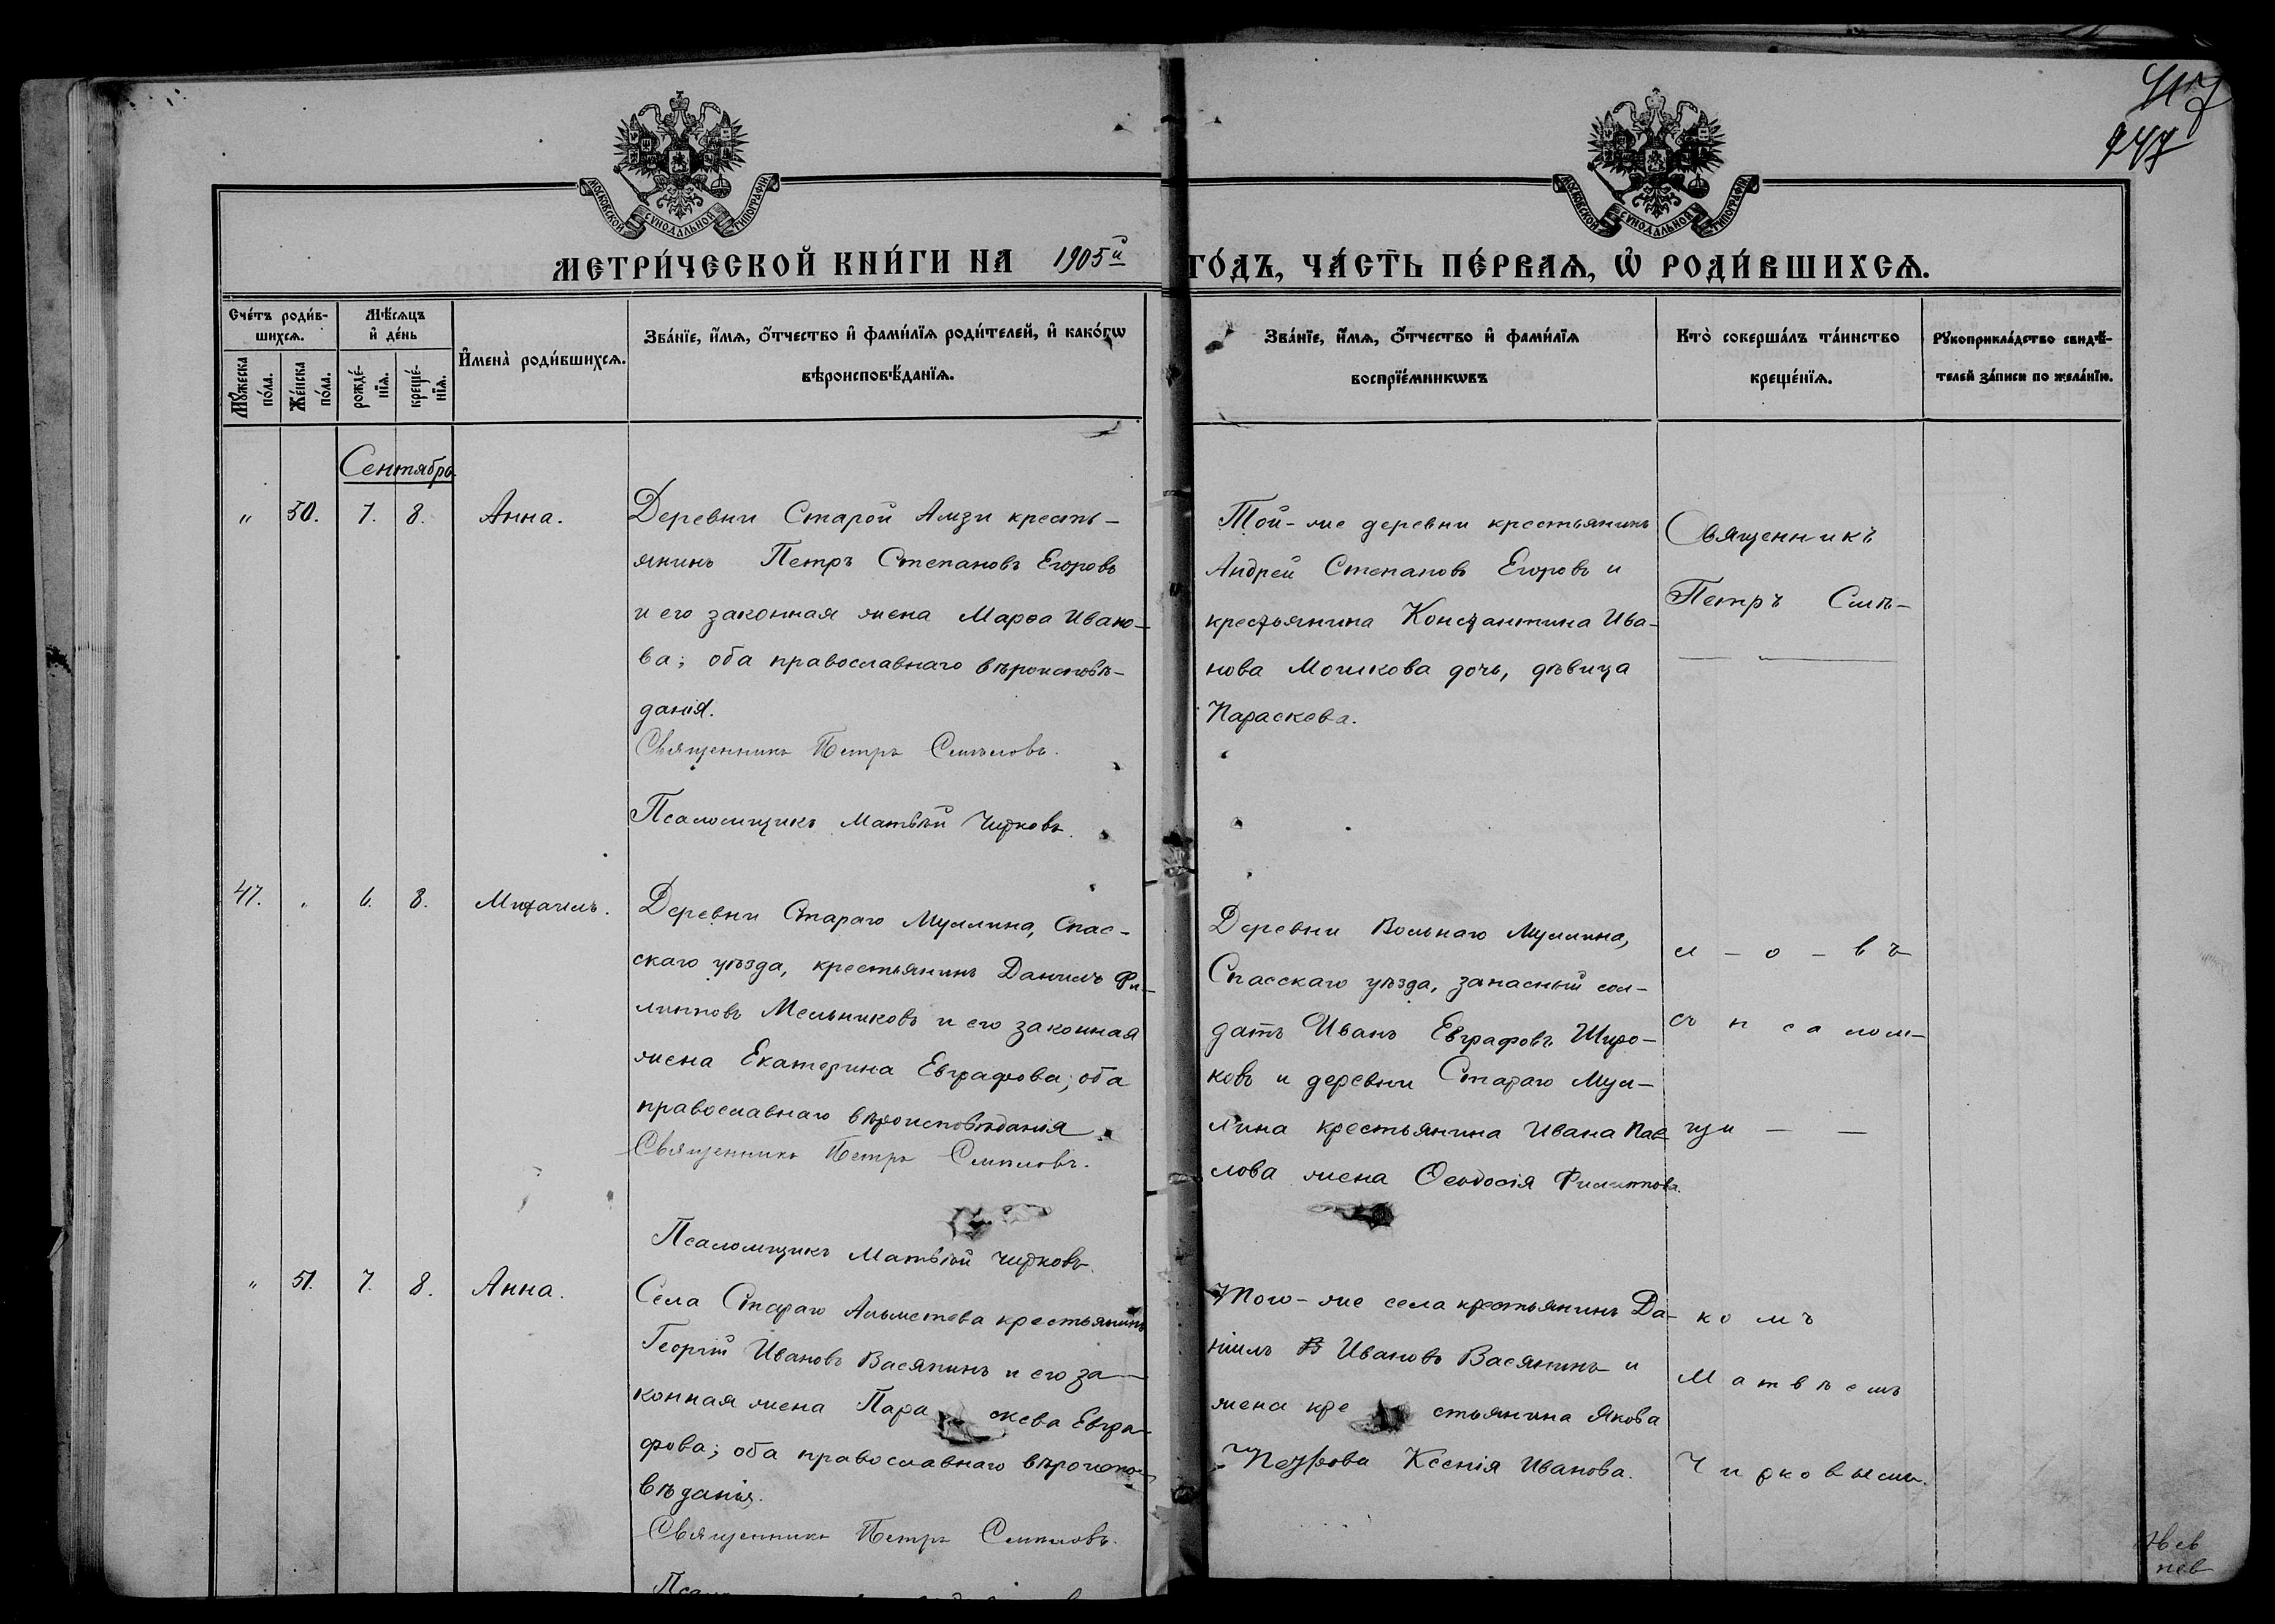 417
247
МОСКОВСКОЙ СѴНОДАЛЬНОЙ ТИПОГРАФІИ
МОСКОВСКОЙ СѴНОДАЛЬНОЙ ТИПОГРАФІИ
МЕТРИ́ЧЕСКОЙ КНИ́ГИ НА 1905й ГО́ДЪ, ЧА́СТЬ ПЕ́РВАѦ, Ѡ҆ РОДИ́ВШИХСѦ.
Сче́тъ роди́в-
шихсѧ.
Мꙋжеска по́ла.
Же́нска по́ла.
Мѣ́сѧцъ
и҆ де́нь
рожде́-
нїѧ.
креще́-
нїѧ.
И҆мена̀ роди́вшихсѧ.
Зва́нїе, и҆́мѧ, ѻ҆́тчество и҆ фами́лїѧ роди́телей, и҆ како́гѡ
вѣроисповѣ́данїѧ.
Зва́нїе, и҆́мѧ, ѻ҆́тчество и҆ фами́лїѧ
воспрїе́мникѡвъ
Кто̀ соверша́лъ та́инство
креще́нїѧ.
Рꙋкоприкла́дство свидѣ́-
телей за́писи по жела́нїю.
Сентябрь
" 50. 7. 8. Анна.
Деревни Старой Амзи кресть-
янинъ Петръ Степановъ Егоровъ
и его законная жена Марѳа Ивано-
ва; оба православнаго вѣроисповѣ-
данія.
Священникъ Петръ Смѣловъ.
Псаломщикъ Матвѣй Чирковъ.
Той-же деревни крестьянинъ
Андрей Степановъ Егоровъ и
крестьянина Константина Ива-
нова Мошкова дочь, дѣвица
Параскева.
Священникъ
Петръ Смѣ-
47. " 6. 8. Михаилъ.
Деревни Стараго Муллина, Спас-
скаго уѣзда, крестьянинъ Даниилъ Фи-
липповъ Мельниковъ и его законная
жена Екатерина Евграфова; оба
православнаго вѣроисповѣданія.
Священникъ Петръ Смѣловъ.
Псаломщикъ Матвѣй Чирковъ.
Деревни Вольнаго Муллина,
Спасскаго уѣзда, запасный сол-
датъ Иванъ Евграфовъ Широ-
ковъ и деревни Стараго Мул-
лина крестьянина Ивана Пав-
лова жена Ѳеодосія Филиппова.
л - о - въ
съ псалом-
щи - -
" 51. 7. 8. Анна.
Села Стараго Альметева крестьянинъ
Георгій Ивановъ Васянинъ и его за-
конная жена Параскева Евгра-
фова; оба православнаго вѣроиспо-
вѣданія.
Священникъ Петръ Смѣловъ.
Того-же села крестьянинъ Да-
ніилъ Ивановъ Васянинъ и
жена крестьянина Якова
Петрова Ксенія Иванова.
комъ
Матвѣемъ
Чирковымъ.